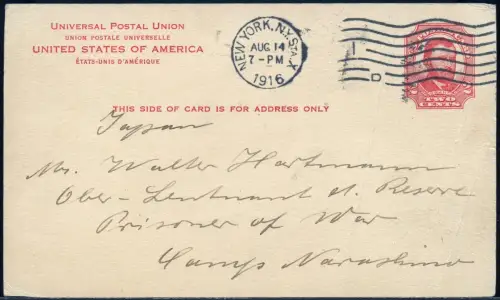 UNIVERSAL POSTAL UNION
UNION POSTALE UNIVERSELLE
UNITED STATES OF AMERICA
ÉTATS-UNIS D'AMÉRIQUE
NEW YORK, N.Y. STA. X
AUG 14
7-PM
1916
D
TWO
CENTS
THIS SIDE OF CARD IS FOR ADDRESS ONLY
Japan
Mr. Walter Hartmann
Ober-Lieutnant d. Reserve
Prisoner of War
Camp Narashino